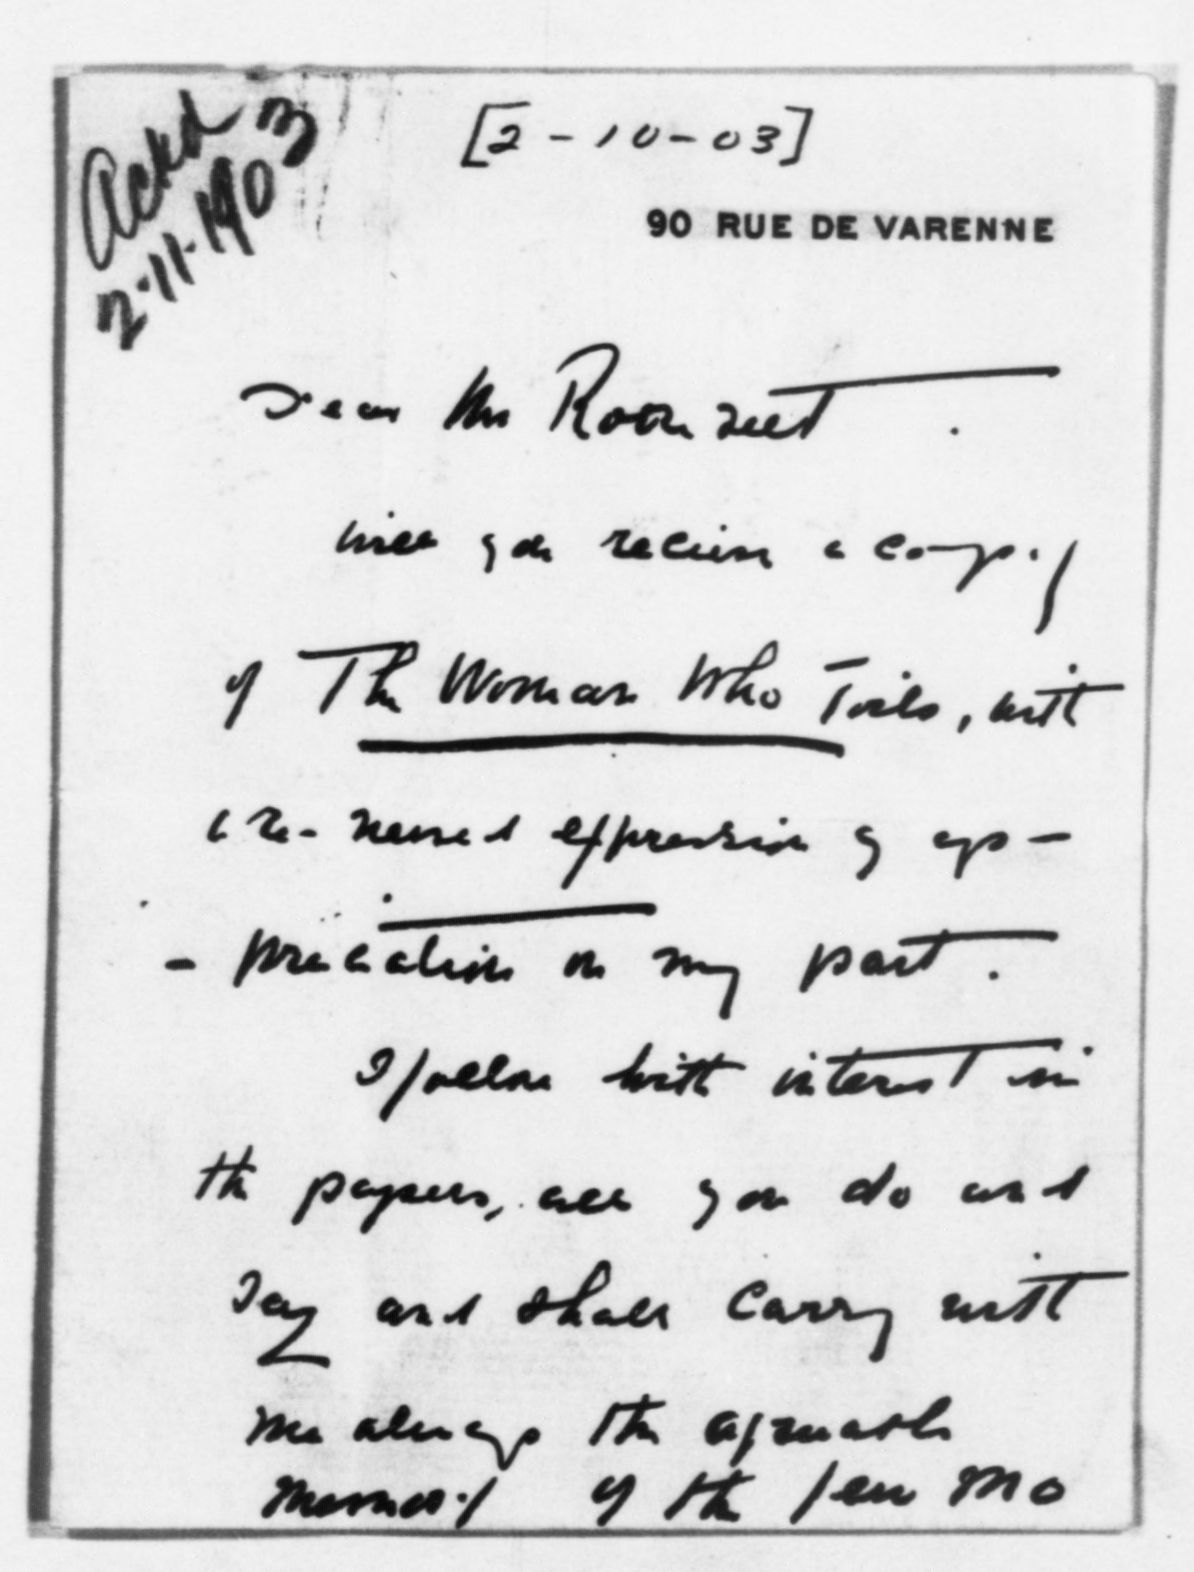 Ackd
2-11-1903
[2-10-03]
90 RUE DE VARENNE
Dear Mr Roosevelt.
Will you receive a copy
of The Woman Who Toils, with
a re-newed expression of ap-
-preciation on my part.
I follow with interest in
the papers, all you do and
say and shall carry with
me always the agreeable
memory of the few mo